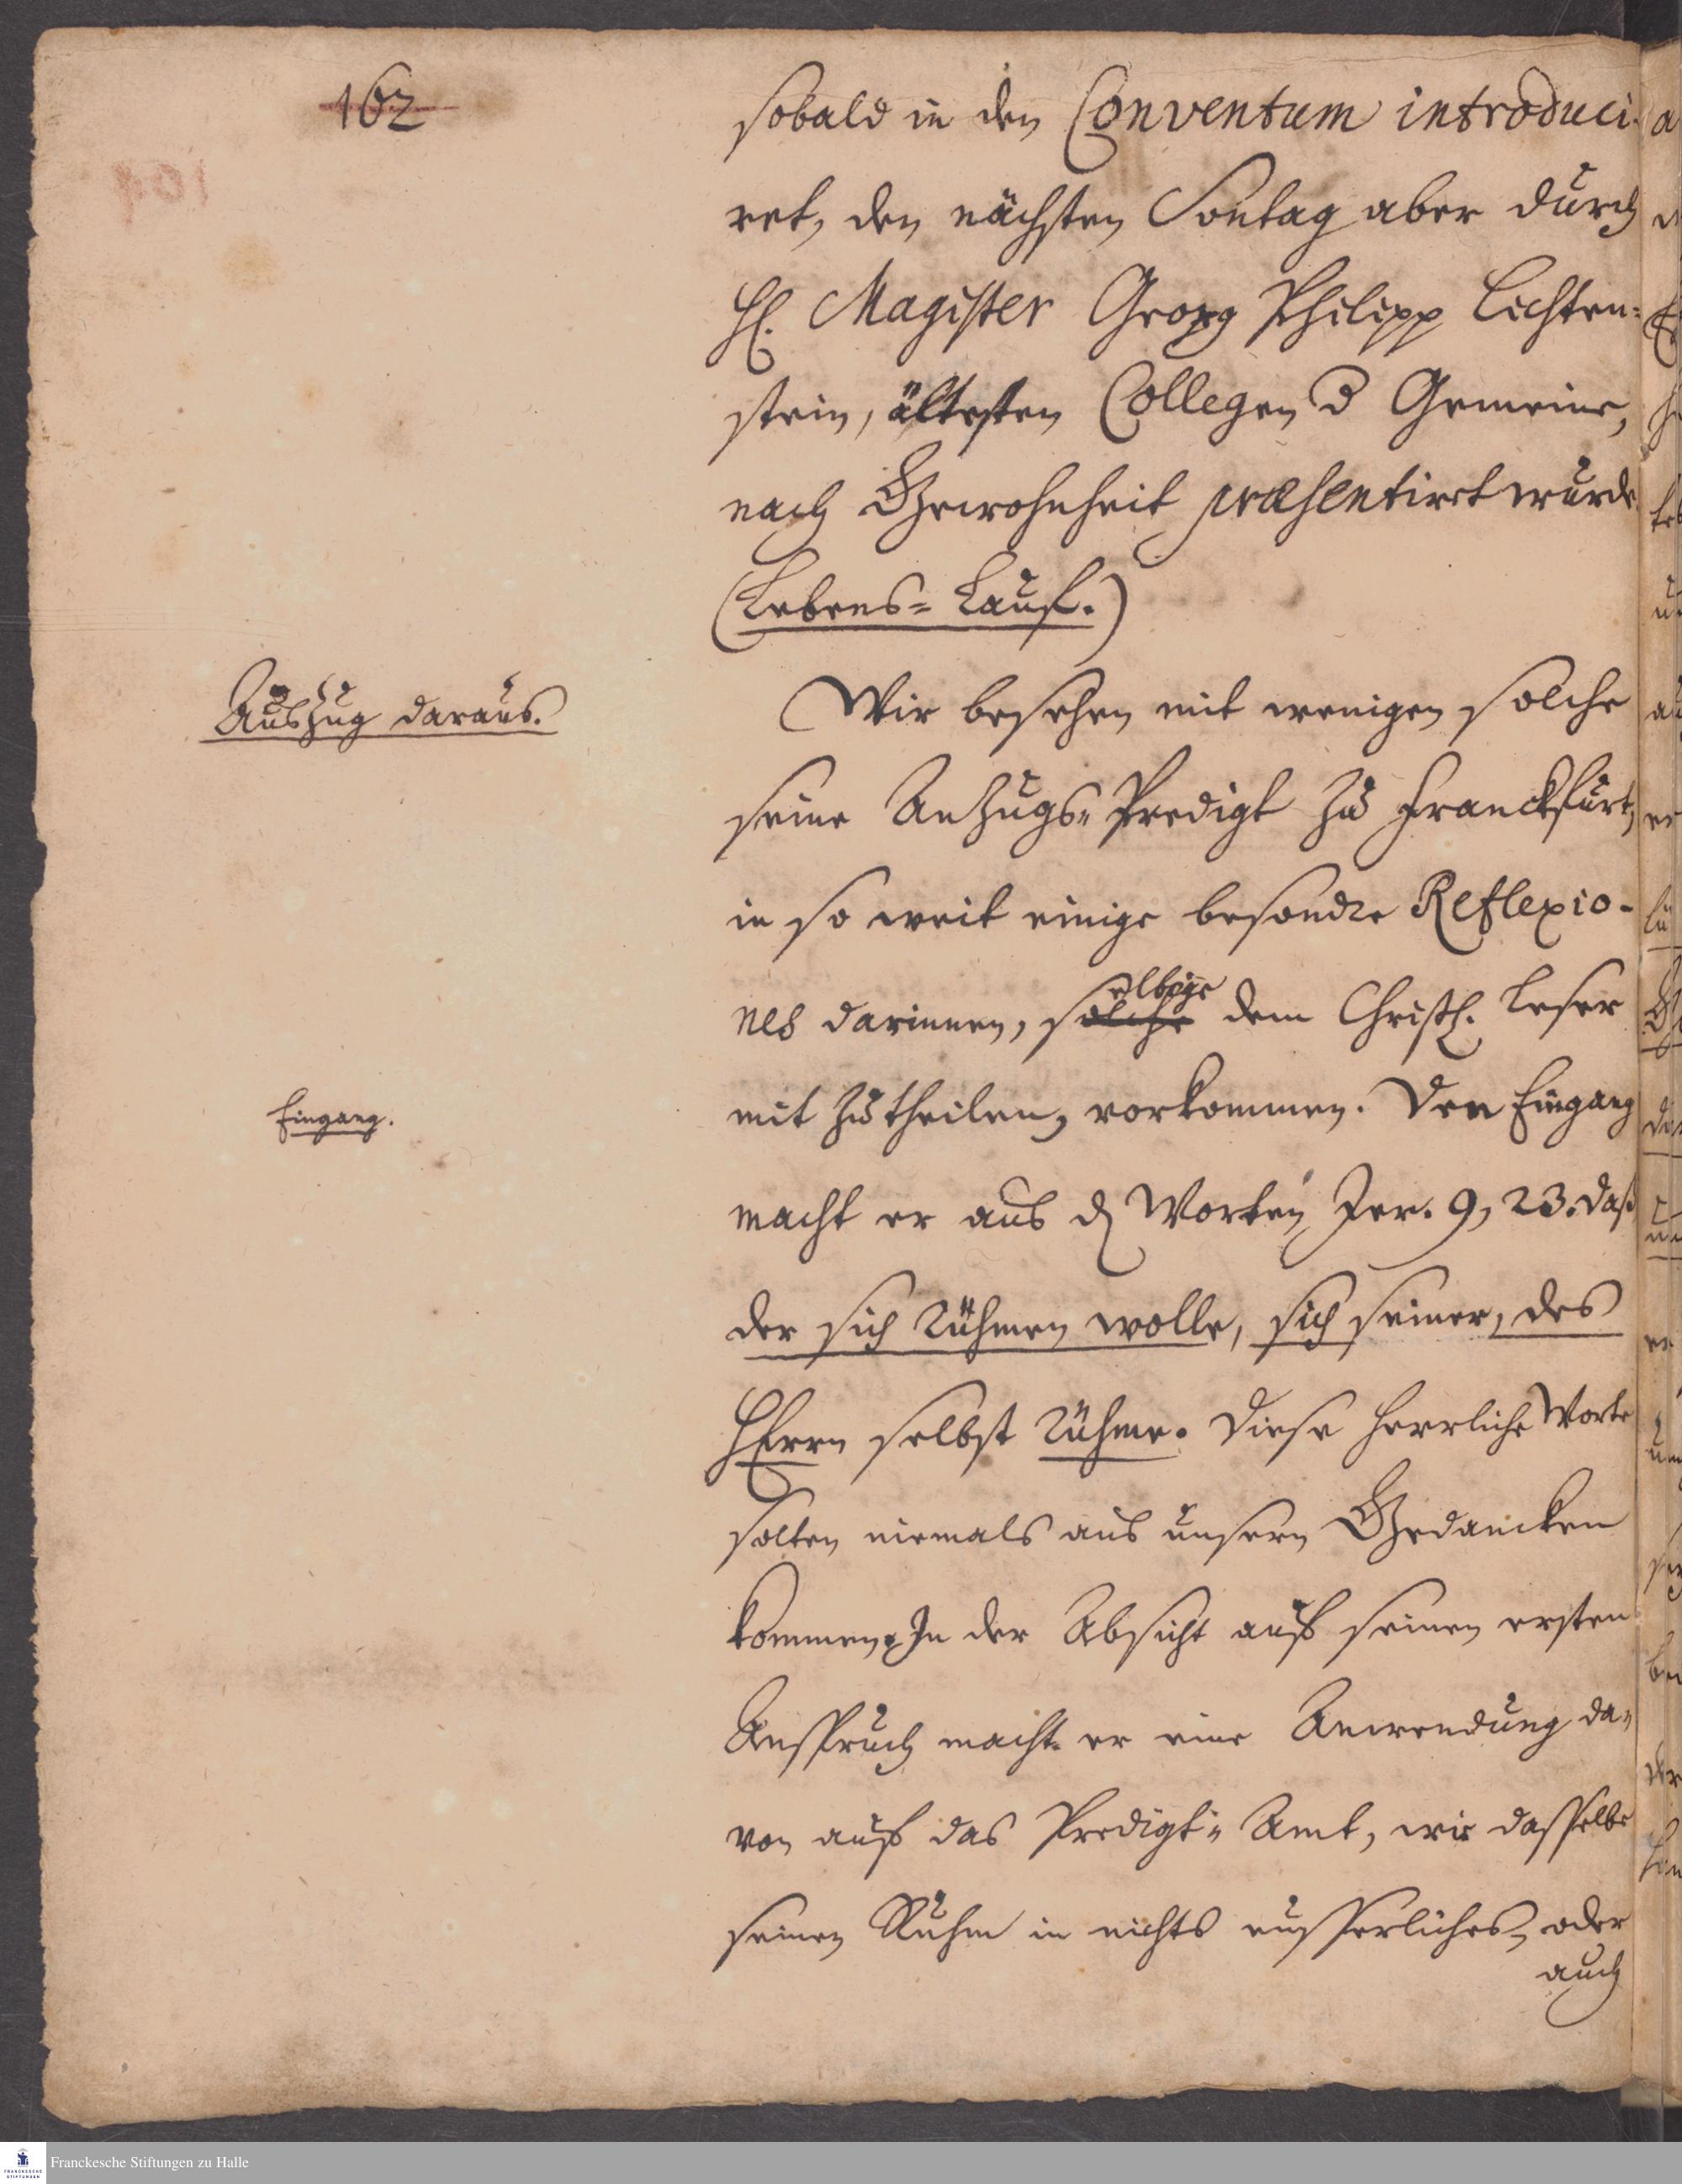 162
sobald in den Conventum introduci-
ret, den nächsten Sontag aber durch
H. Magister Georg Philipp Lichten-
stein, ältesten Collegen d Gemeine,
nach Gewohnheit præsentiret wurde.
(Lebens-Lauf.)
Auszug daraus.
Wir besehen mit wenigen solche
seine Anzugs-Predigt zu Franckfurt,
in so weit einige besondre Reflexio-
nes darinnen, solche elbige dem Christl. Leser
mit zu theilen, vorkommen. Den Eingang
Eingang.
macht er aus d Worten Jer. 9, 23. daß
der sich rühmen wolle, sich seiner, des
HErrn selbst rühme. Diese herrliche Worte
solten niemals aus unsern Gedancken
kommen. In der Absicht auf seinen ersten
Anspruch macht er eine Anwendung da-
von auf das Predigt-Amt, wie dasselbe
seinen Ruhm in nichts eusserliches, oder
auch
Franckesche Stiftungen zu Halle